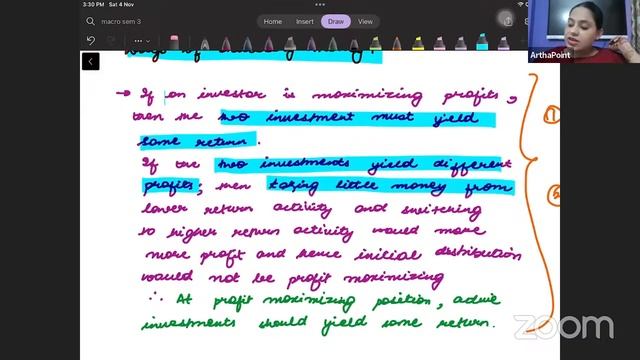 3:30 PM Sat 4 Nov
macro sem 3
Home Insert Draw View
ArthaPoint
→ If an investor is maximizing profits,
then the two investment must yield
same return.
If the two investments yield different
profits, then taking little money from
lower return activity and switching
to higher return activity would more
more profit and hence initial distribution
would not be profit maximizing
∴ At profit maximizing position,
investments should yield same return.
①
②
zoom